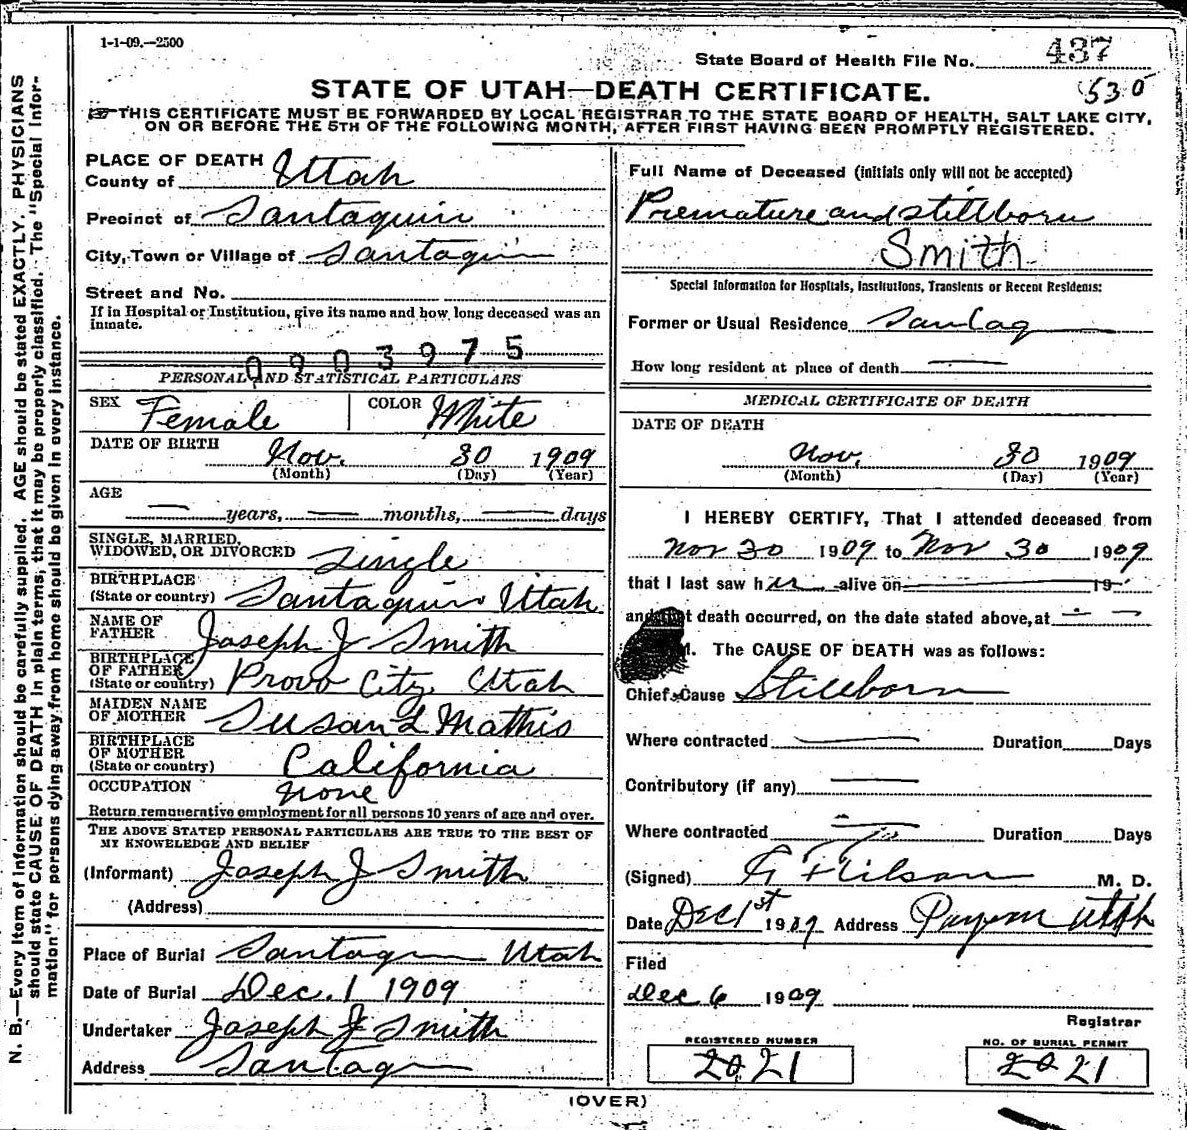 1-1-09.—2500
State Board of Health File No. 437
STATE OF UTAH—DEATH CERTIFICATE.
530
THIS CERTIFICATE MUST BE FORWARDED BY LOCAL REGISTRAR TO THE STATE BOARD OF HEALTH, SALT LAKE CITY,
ON OR BEFORE THE 5TH OF THE FOLLOWING MONTH, AFTER FIRST HAVING BEEN PROMPTLY REGISTERED.
N. B.—Every item of information should be carefully supplied. AGE should be stated EXACTLY. PHYSICIANS
should state CAUSE OF DEATH in plain terms, that it may be properly classified. The "Special Infor-
mation" for persons dying away from home should be given in every instance.
PLACE OF DEATH
County of Utah
Precinct of Santaquin
City, Town or Village of Santaquin
Street and No.
If in Hospital or Institution, give its name and how long deceased was an
inmate.
0903975
PERSONAL AND STATISTICAL PARTICULARS
SEX Female COLOR White
DATE OF BIRTH
Nov. 30 1909
(Month) (Day) (Year)
AGE
— years, — months, — days
SINGLE, MARRIED,
WIDOWED, OR DIVORCED Single
BIRTHPLACE
(State or country) Santaquin Utah
NAME OF
FATHER Joseph J Smith
BIRTHPLACE
OF FATHER
(State or country) Provo City, Utah
MAIDEN NAME
OF MOTHER Susan L Mathis
BIRTHPLACE
OF MOTHER
(State or country) California
OCCUPATION none
Return remunerative employment for all persons 10 years of age and over.
THE ABOVE STATED PERSONAL PARTICULARS ARE TRUE TO THE BEST OF
MY KNOWELEDGE AND BELIEF
(Informant) Joseph J Smith
(Address)
Place of Burial Santaquin Utah
Date of Burial Dec. 1 1909
Undertaker Joseph J Smith
Address Santaqn
Full Name of Deceased (initials only will not be accepted)
Premature and stillborn
Smith
Special Information for Hospitals, Institutions, Transients or Recent Residents:
Former or Usual Residence Santaq
How long resident at place of death —
MEDICAL CERTIFICATE OF DEATH
DATE OF DEATH
Nov. 30 1909
(Month) (Day) (Year)
I HEREBY CERTIFY, That I attended deceased from
Nov 30 1909 to Nov 30 1909
that I last saw her alive on — 19
and that death occurred, on the date stated above, at — —
M. The CAUSE OF DEATH was as follows:
Chief Cause Stillborn
Where contracted — Duration Days
Contributory (if any) —
Where contracted — Duration Days
(Signed) M. D.
Date Dec 1st 1909 Address Payson Utah
Filed
Dec 6 1909
Registrar
REGISTERED NUMBER
2021
NO. OF BURIAL PERMIT
2021
(OVER)